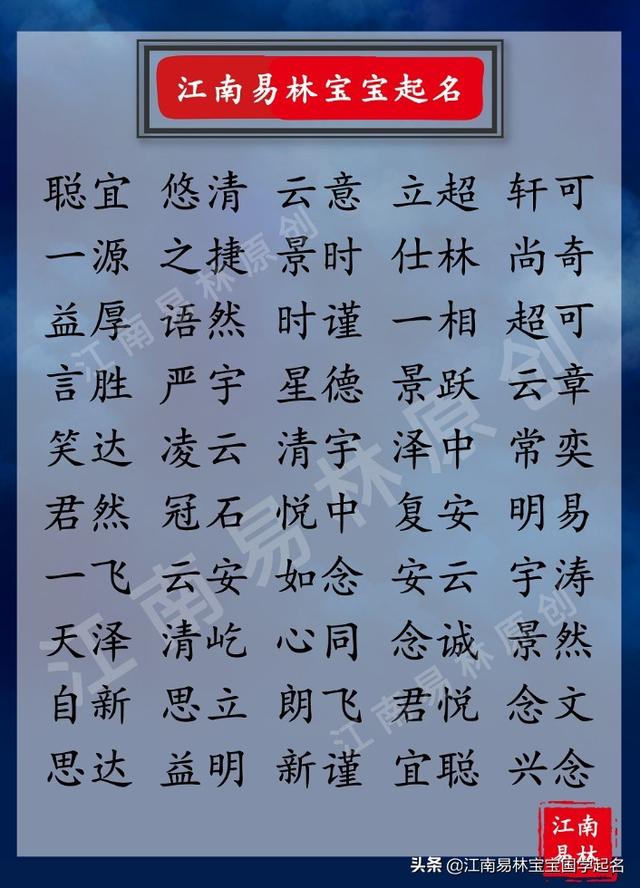 江南易林宝宝起名
聪宜 悠清 云意 立超 轩可
一源 之捷 景时 仕林 尚奇
益厚 语然 时谨 一相 超可
言胜 严宇 星德 景跃 云章
笑达 凌云 清宇 泽中 常奕
君然 冠石 悦中 复安 明易
一飞 云安 如念 安云 宇涛
天泽 清屹 心同 念诚 景然
自新 思立 朗飞 君悦 念文
思达 益明 新谨 宜聪 兴念
江南易林原创
江南易林原创
江南易林原创
江南
易林
头条 @江南易林宝宝国学起名